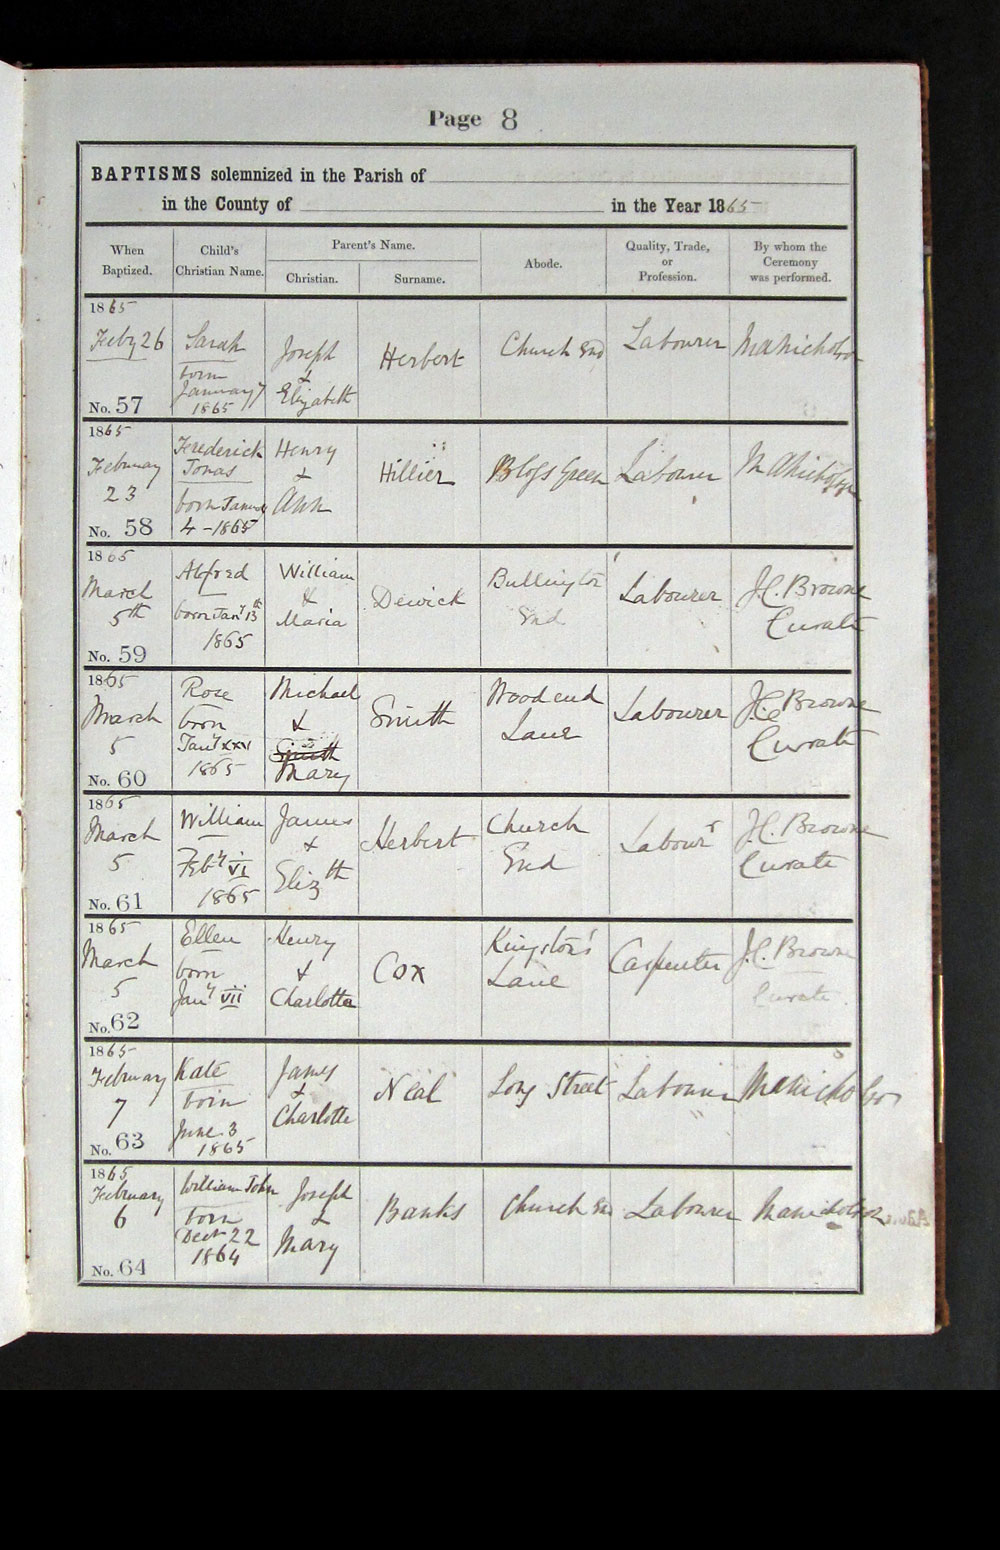 Page 8
BAPTISMS solemnized in the Parish of
in the County of in the Year 1865
When Baptized. Child's Christian Name. Parent's Name. Christian. Surname. Abode. Quality, Trade, or Profession. By whom the Ceremony was performed.
1865
Feby 26 Sarah Joseph Herbert Church End Labourer
born &
January 7 Elizabeth
No. 57 1865
1865
February Frederick Henry Hillier Green Labourer
23 Jonas &
born Ann
No. 58 4 - 1865
1865
March Alfred William Dewick Bullington Labourer J.C. Browne
5th born Jany 13th & End Curate
1865 Maria
No. 59
1865
March Rose Michael Smith Wood end Labourer J.C. Browne
5 born & Lane Curate
Jany xxvi Smith
No. 60 1865 Mary
1865
March William James Herbert Church Labourr J.C. Browne
5 Feby vi & End Curate
1865 Elizth
No. 61
1865
March Ellen Henry Cox Kingston's Carpenter J.C. Browne
5 born & Lane Curate
Jany vii Charlotte
No. 62
1865
February Kate James Neal Long Street Labourer
7 born &
June 3 Charlotte
No. 63 1865
1865
February William John Joseph Banks Church End Labourer
6 born &
Decr 22 Mary
No. 64 1864